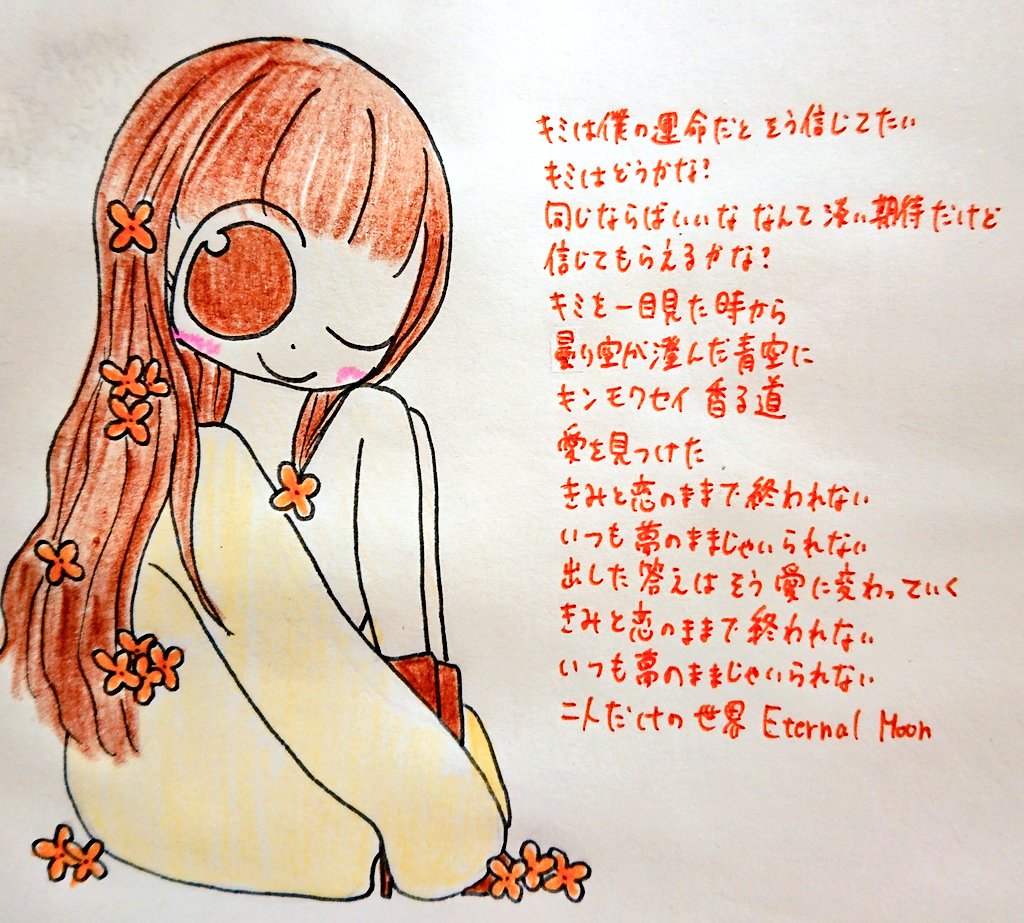 キミは僕の運命だと そう信じてたい
キミはどうかな?
同じならばいいな なんて 淡い期待だけど
信じてもらえるかな?
キミを一目見た時から
曇り空が澄んだ青空に
キンモクセイ 香る道
愛を見つけた
きみと恋のままで終われない
いつも夢のままじゃいられない
出した答えは そう 愛に変わっていく
きみと恋のままで終われない
いつも夢のままじゃいられない
二人だけの世界 Eternal Moon